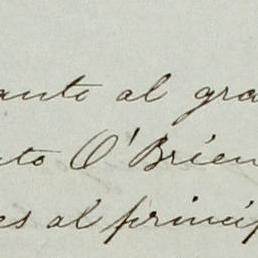 ante al gra
nto O'Brien
es al princip